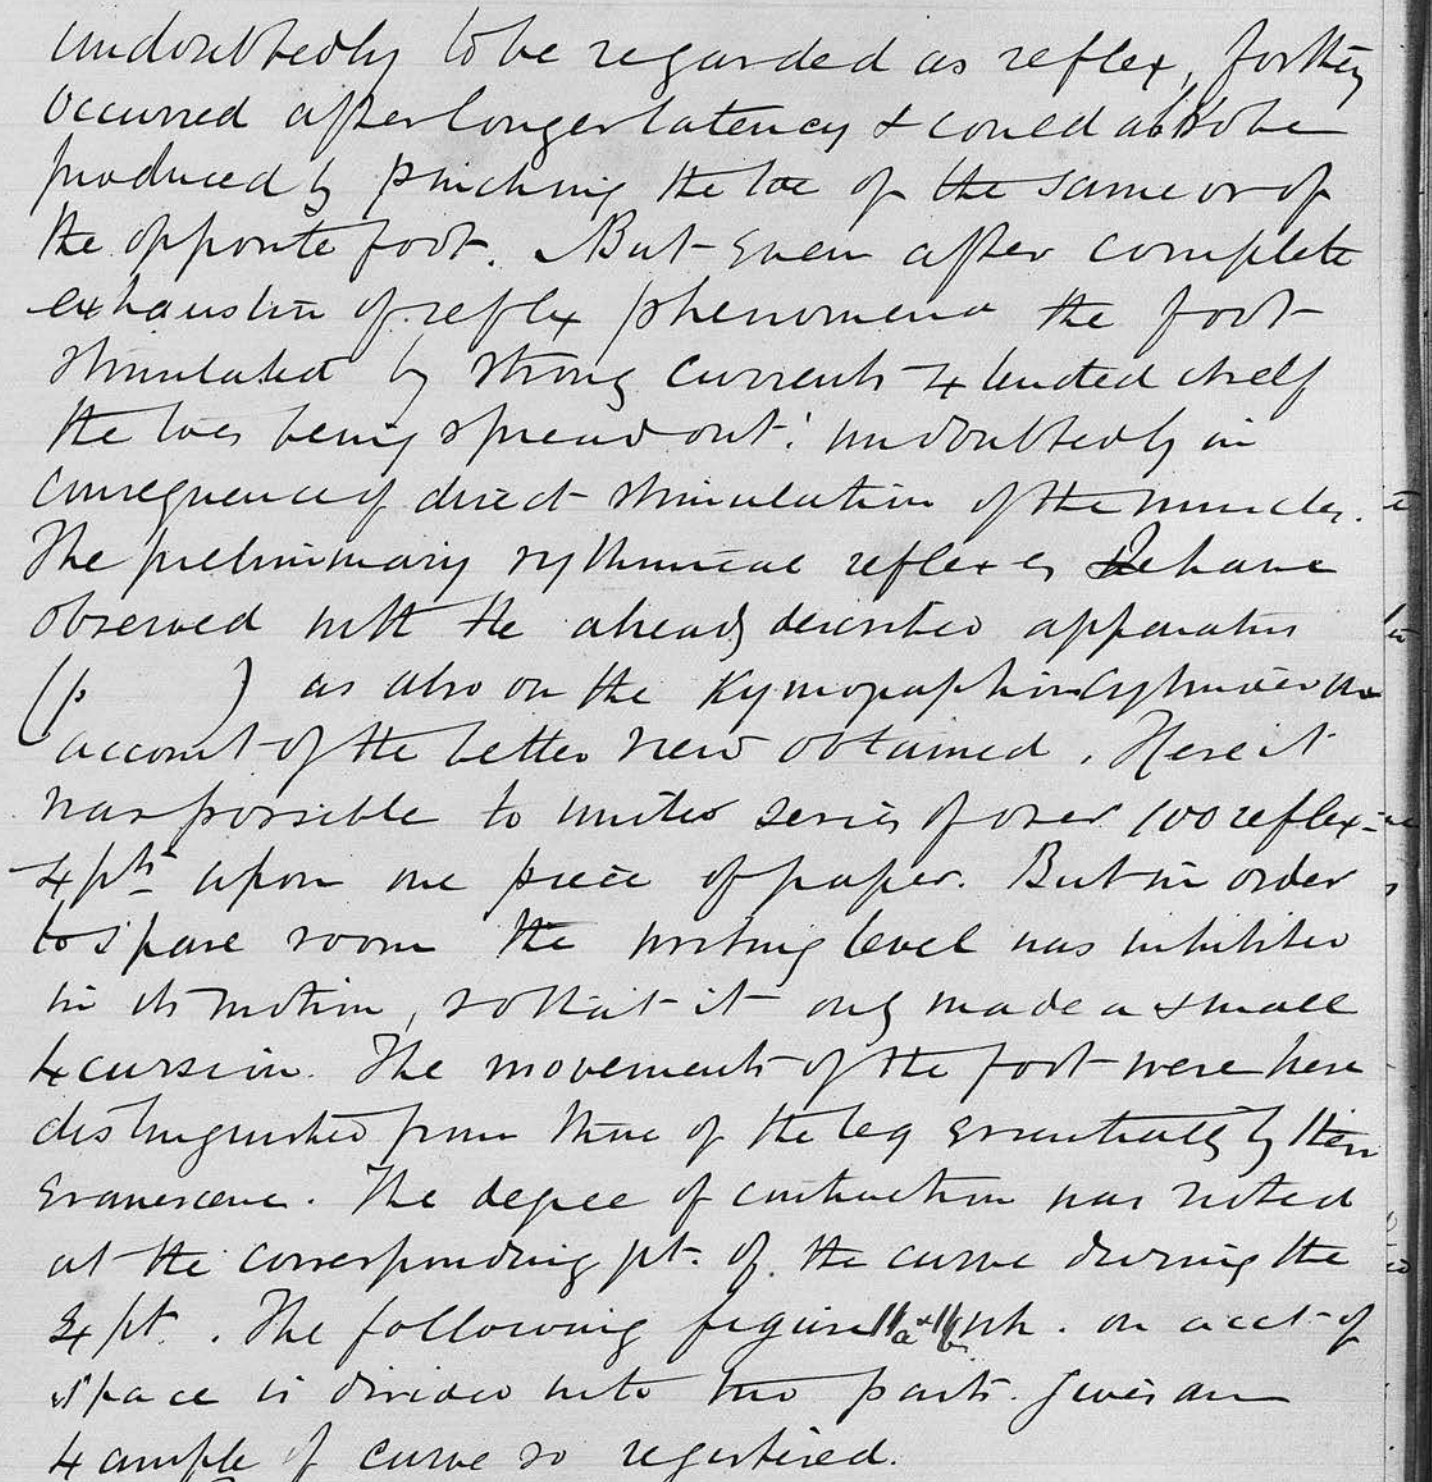 undoubtedly to be regarded as reflex, for they
occurred after longer latency & could also be
produced by pinching the toe of the same or of
the opposite foot. But even after complete
exhaustion of reflex phenomena the foot
stimulated by strong currents extended itself
the toes being spread out: undoubtedly in
consequence of direct stimulation of the muscles.
The preliminary rythmical reflexes I have
observed with the already described apparatus
(p ) as also on the Kymographion Cylinder on
account of the better view obtained. Here it
was possible to write series of over 100 reflex-
expts upon one piece of paper. But in order
to spare room the writing level was inhibited
in its motion, so that it only made a small
excursion. The movements of the foot were here
distinguished from those of the leg essentially by their
evanescence. The degree of contraction was noted
at the corresponding pt. of the curve during the
expt. The following figure 11a & 11b wh. on acct of
space is divided into two parts. gives an
example of curve so registered.